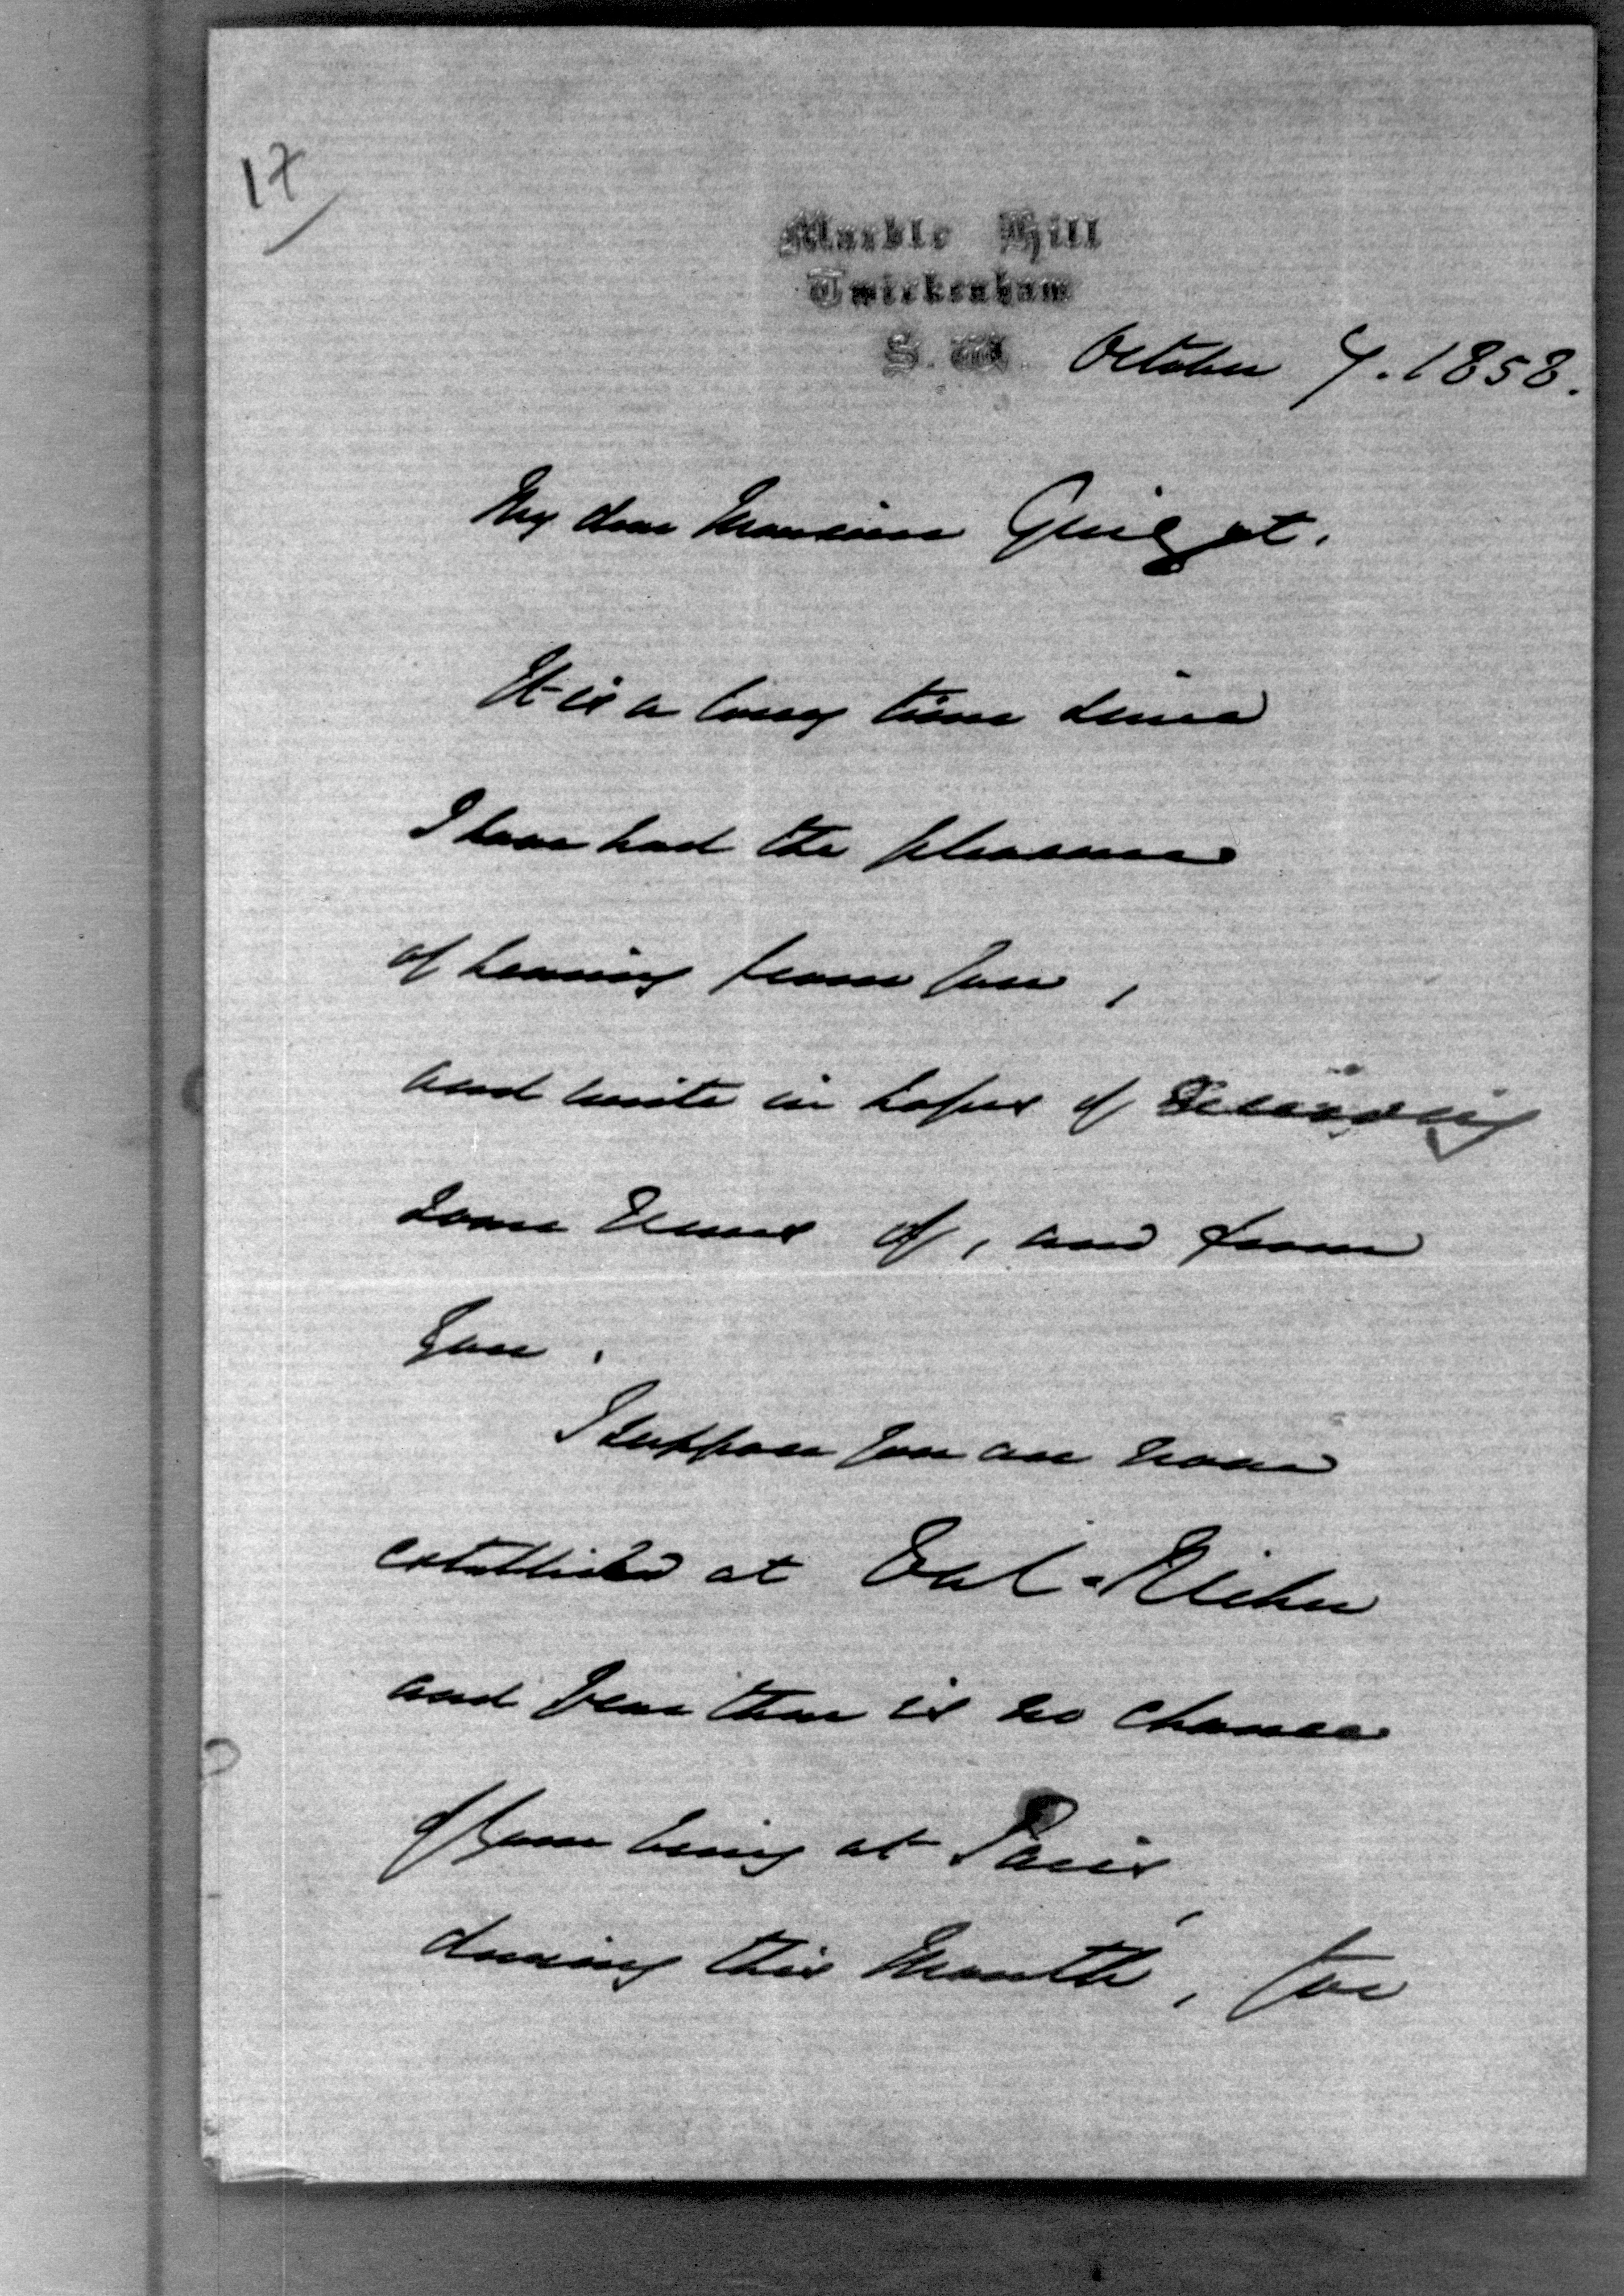 17
Marble Hill
Twickenham
S. W. October 7. 1858.
My dear Monsieur Guizot.
It is a long time since
I have had the pleasure
of hearing from you,
and write in hopes of receiving
some news of, and from
you.
I suppose you are now
established at Val-Richer
and fear there is no chance
of your being at Paris,
during this month, for